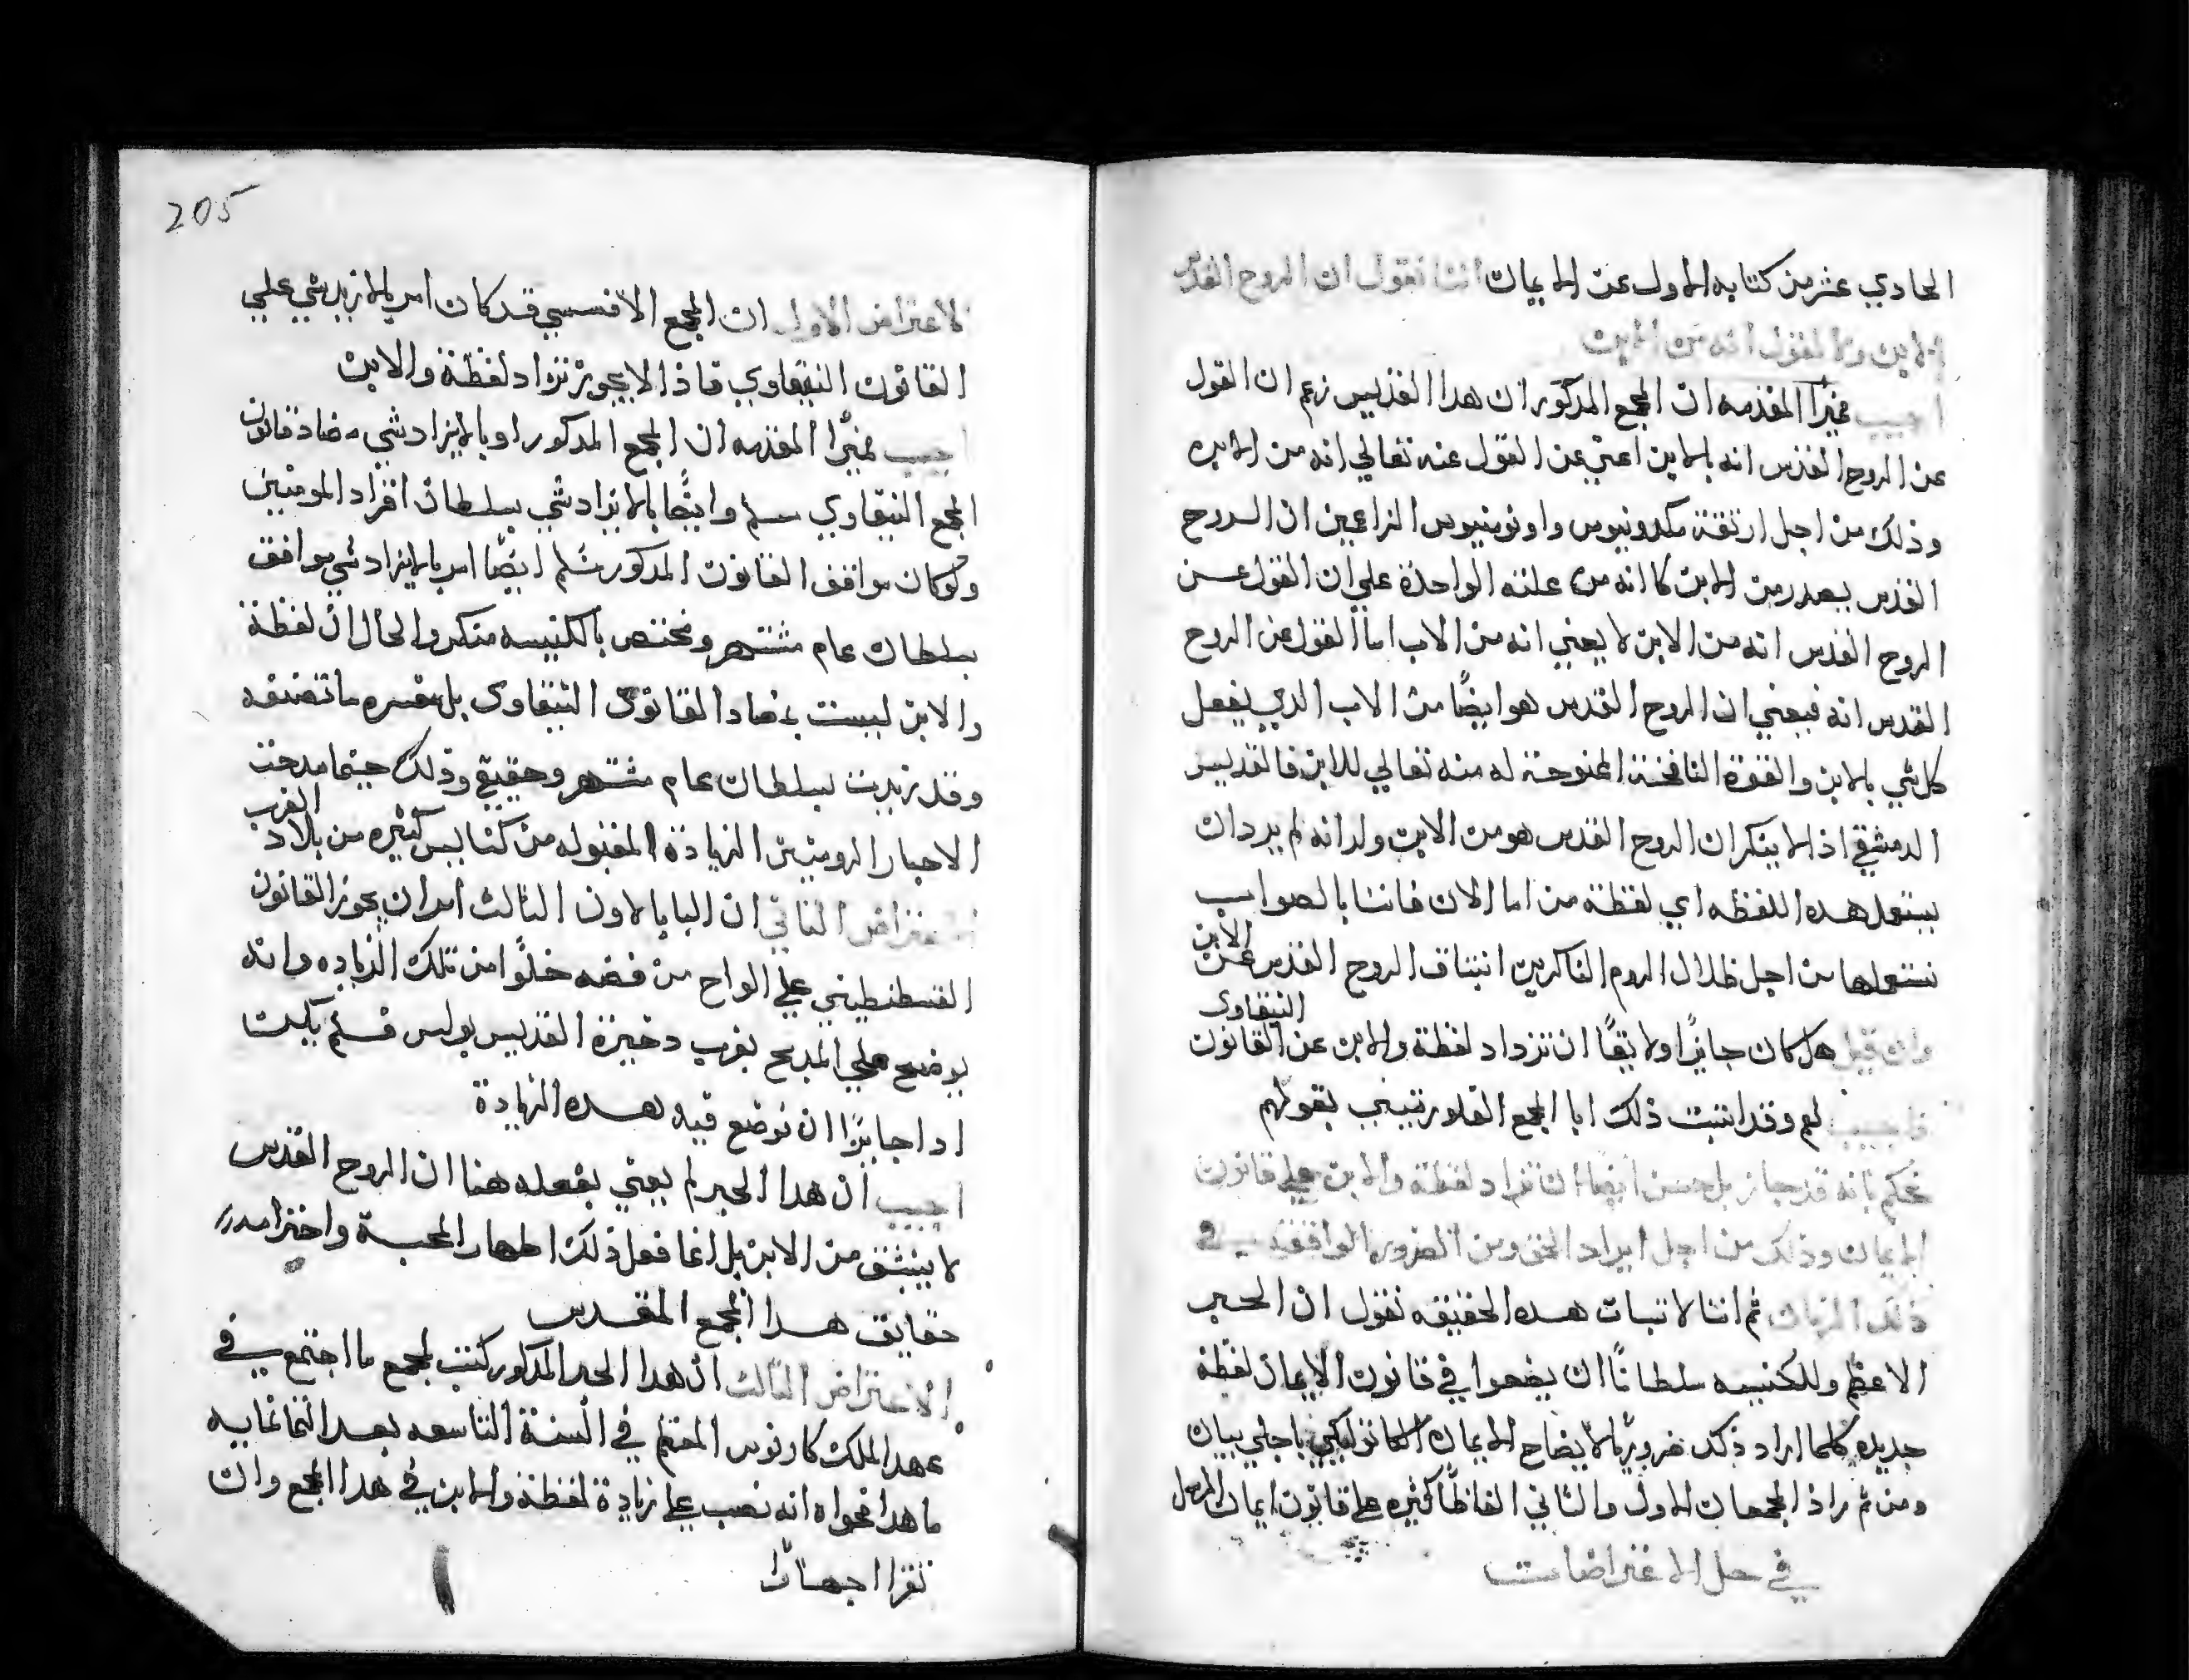 الحادي عشر من كتابه الاول عن الايمان اننا نقول ان الروح القدس
الابن ولا نقول انه من الابن
اجيب مميزا المقدمه ان المجمع المدكور ان هدا القديس زعم ان القول
عن الروح القدس انه بالابن اعتي عن القول عنه تعالي انه من الابن
وذلك من اجل ارتقة مكدونيوس واونوميوس الزاعمين ان الروح
القدس يصدر من الابن كانه من علته الواحدة علي ان القول عن
الروح القدس انه من الابن لا يعني انه من الاب اما القول عن الروح
القدس انه فيعني ان الروح القدس هو ايضًا من الاب الدي يفعل
كل شي بالابن والقوة النافخة الممنوحة له منه تعالي للابن فالقديس
الدمشقي اذا لا ينكر ان الروح القدس هو من الابن ولدانه لم يرد ان
يستعمل هده اللفظه اي لفظة من اما الان فاننا بالصواب
نستعملها من اجل ظلال الروم الناكرين انبتاق الروح القدس عن الابن
وان قيل هل كان جايزًا ولايقًا ان تزداد لفظة والابن عن القانون النيقاوي
فاجيب نعم وقد اتبت ذلك ابا المجمع الفلورنتيني بقولهم
نحكم بانه قد جاز بل حسن ايضًا ان تزاد لفظة والابن علي قانون
الايمان وذلك من اجل ايراد الحق ومن الضروره الواقفة في
ذلك الزمان ثم اننا لاتبات هده الحقيقه نقول ان الحبر
الاعظم وللكنيسه سلطانًا ان يضعوا في قانون الايمان لفظة
جديده كلما اراد ذلك ضروريًا لايضاح الايمان الكاتوليكي باجلي بيان
ومن ثم زاد المجمعان الاول والتاني الفاظًا كثيره علي قانون ايمان الرسل
في حل الاعتراضات
205
الاعتراض الاولي ان المجمع الافسسي قد كان امر بالا يزيد شي علي
القانون النيقاوي فاذا لا يجوز تزاد لفظة والابن
اجيب مميزًا المقدمه ان المجمع المدكور اوبالا يزاد شي مضاد قانون
المجمع النيقاوي سلم وايضًا بالا يزاد شي بسلطان افراد المومنين
ولوكان موافق القانون المدكور سلم ايضًا امر بالا يزاد شي موافق
بسلطان عام مشتهر ومختص بالكنيسه منكر والحال ان لفظة
والابن ليست بمضاد القانون النيقاوي بل مفسره ما تضمنه
وقد زيدت بسلطان عام مشتهر وحقيقي وذلك حينما مدحت
الاحبار الرومين الزيادة المقبوله من كنايس كثيره من بلاد الغرب
الاعتراض التاني ان البابا لاون التالت امر ان يحرز القانون
القسطنطيني علي الواح من فضه خلوًا من تلك الزياده وانه
يوضع علي المدبح بقرب دخيرة القديس بولس فلم يكن
ادا جايزًا ان توضع فيه هده الزيادة
اجيب ان هدا الحبر لم يعني بفعله هنا ان الروح القدس
لا ينبثق من الابن بل انما فعل ذلك اظهار المحبة واحترامه
حقايق هدا المجمع المقدس
الاعتراض التالت ان هدا الحبر المدكور كتب لمجمع ما اجتمع في
عهد الملك كارلوس المعظم في السنة التاسعه بعد التمانمايه
ما هدا فحواه انه نصب علي زيادة لفظة والابن في هدا المجمع وان
تقرا اجهارًا